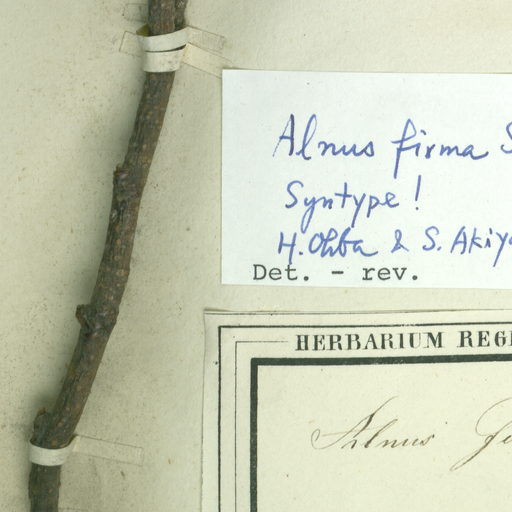 Alnus firma S
Syntype!
H. Ohba & S. Akiy
Det. - rev.
HERBARIUM REGI
Alnus fi